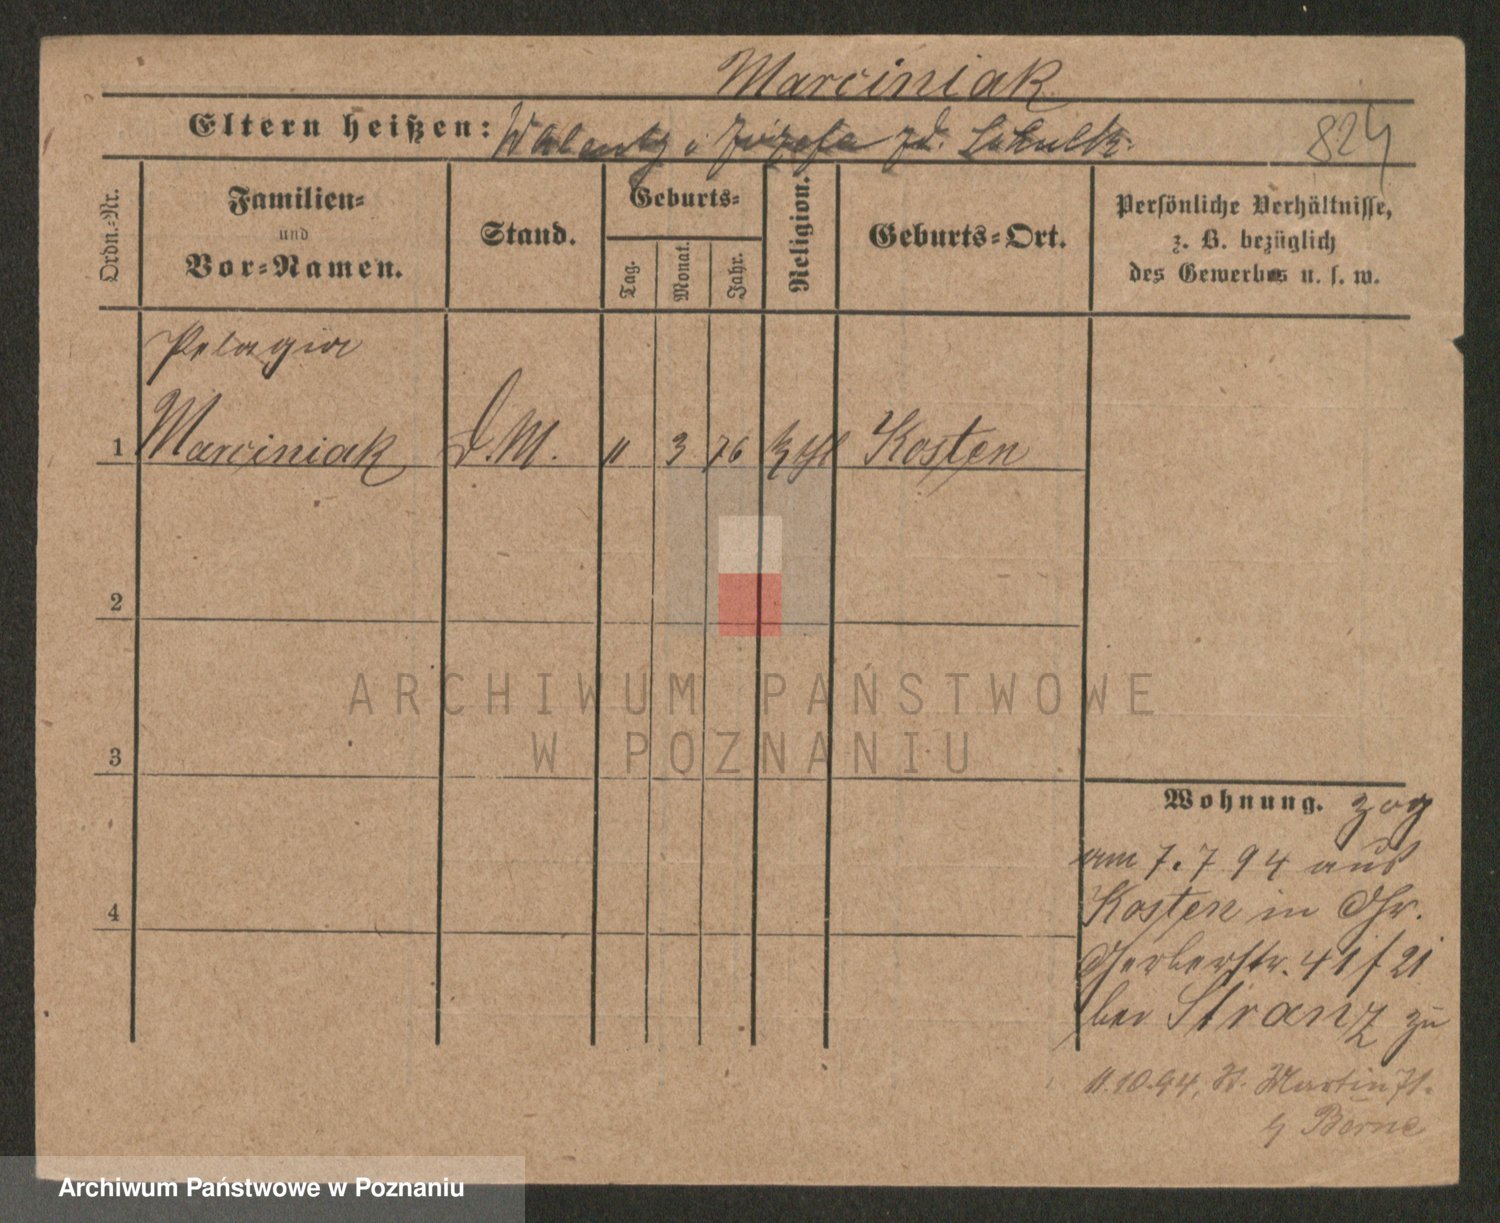 Marciniak
Eltern heißen: Walenty i Józefa zd.
824
Ordn.-Nr.
Familien-
und
Vor-Namen.
Stand.
Geburts-
Tag.
Monat.
Jahr.
Religion.
Geburts-Ort.
Persönliche Verhältnisse,
z. B. bezüglich
des Gewerbes u. s. w.
Pelagia
1 Marciniak D. M. 11 3 76 kthl Kosten
2
3
4
Wohnung. zog
am 7. 7 94 aus
Kosten in Gr.
Gerberstr. 41 f 21
bei Stranz zu
11.10.94, St. Martin 71.
b Borne
ARCHIWUM PAŃSTWOWE
W POZNANIU
Archiwum Państwowe w Poznaniu